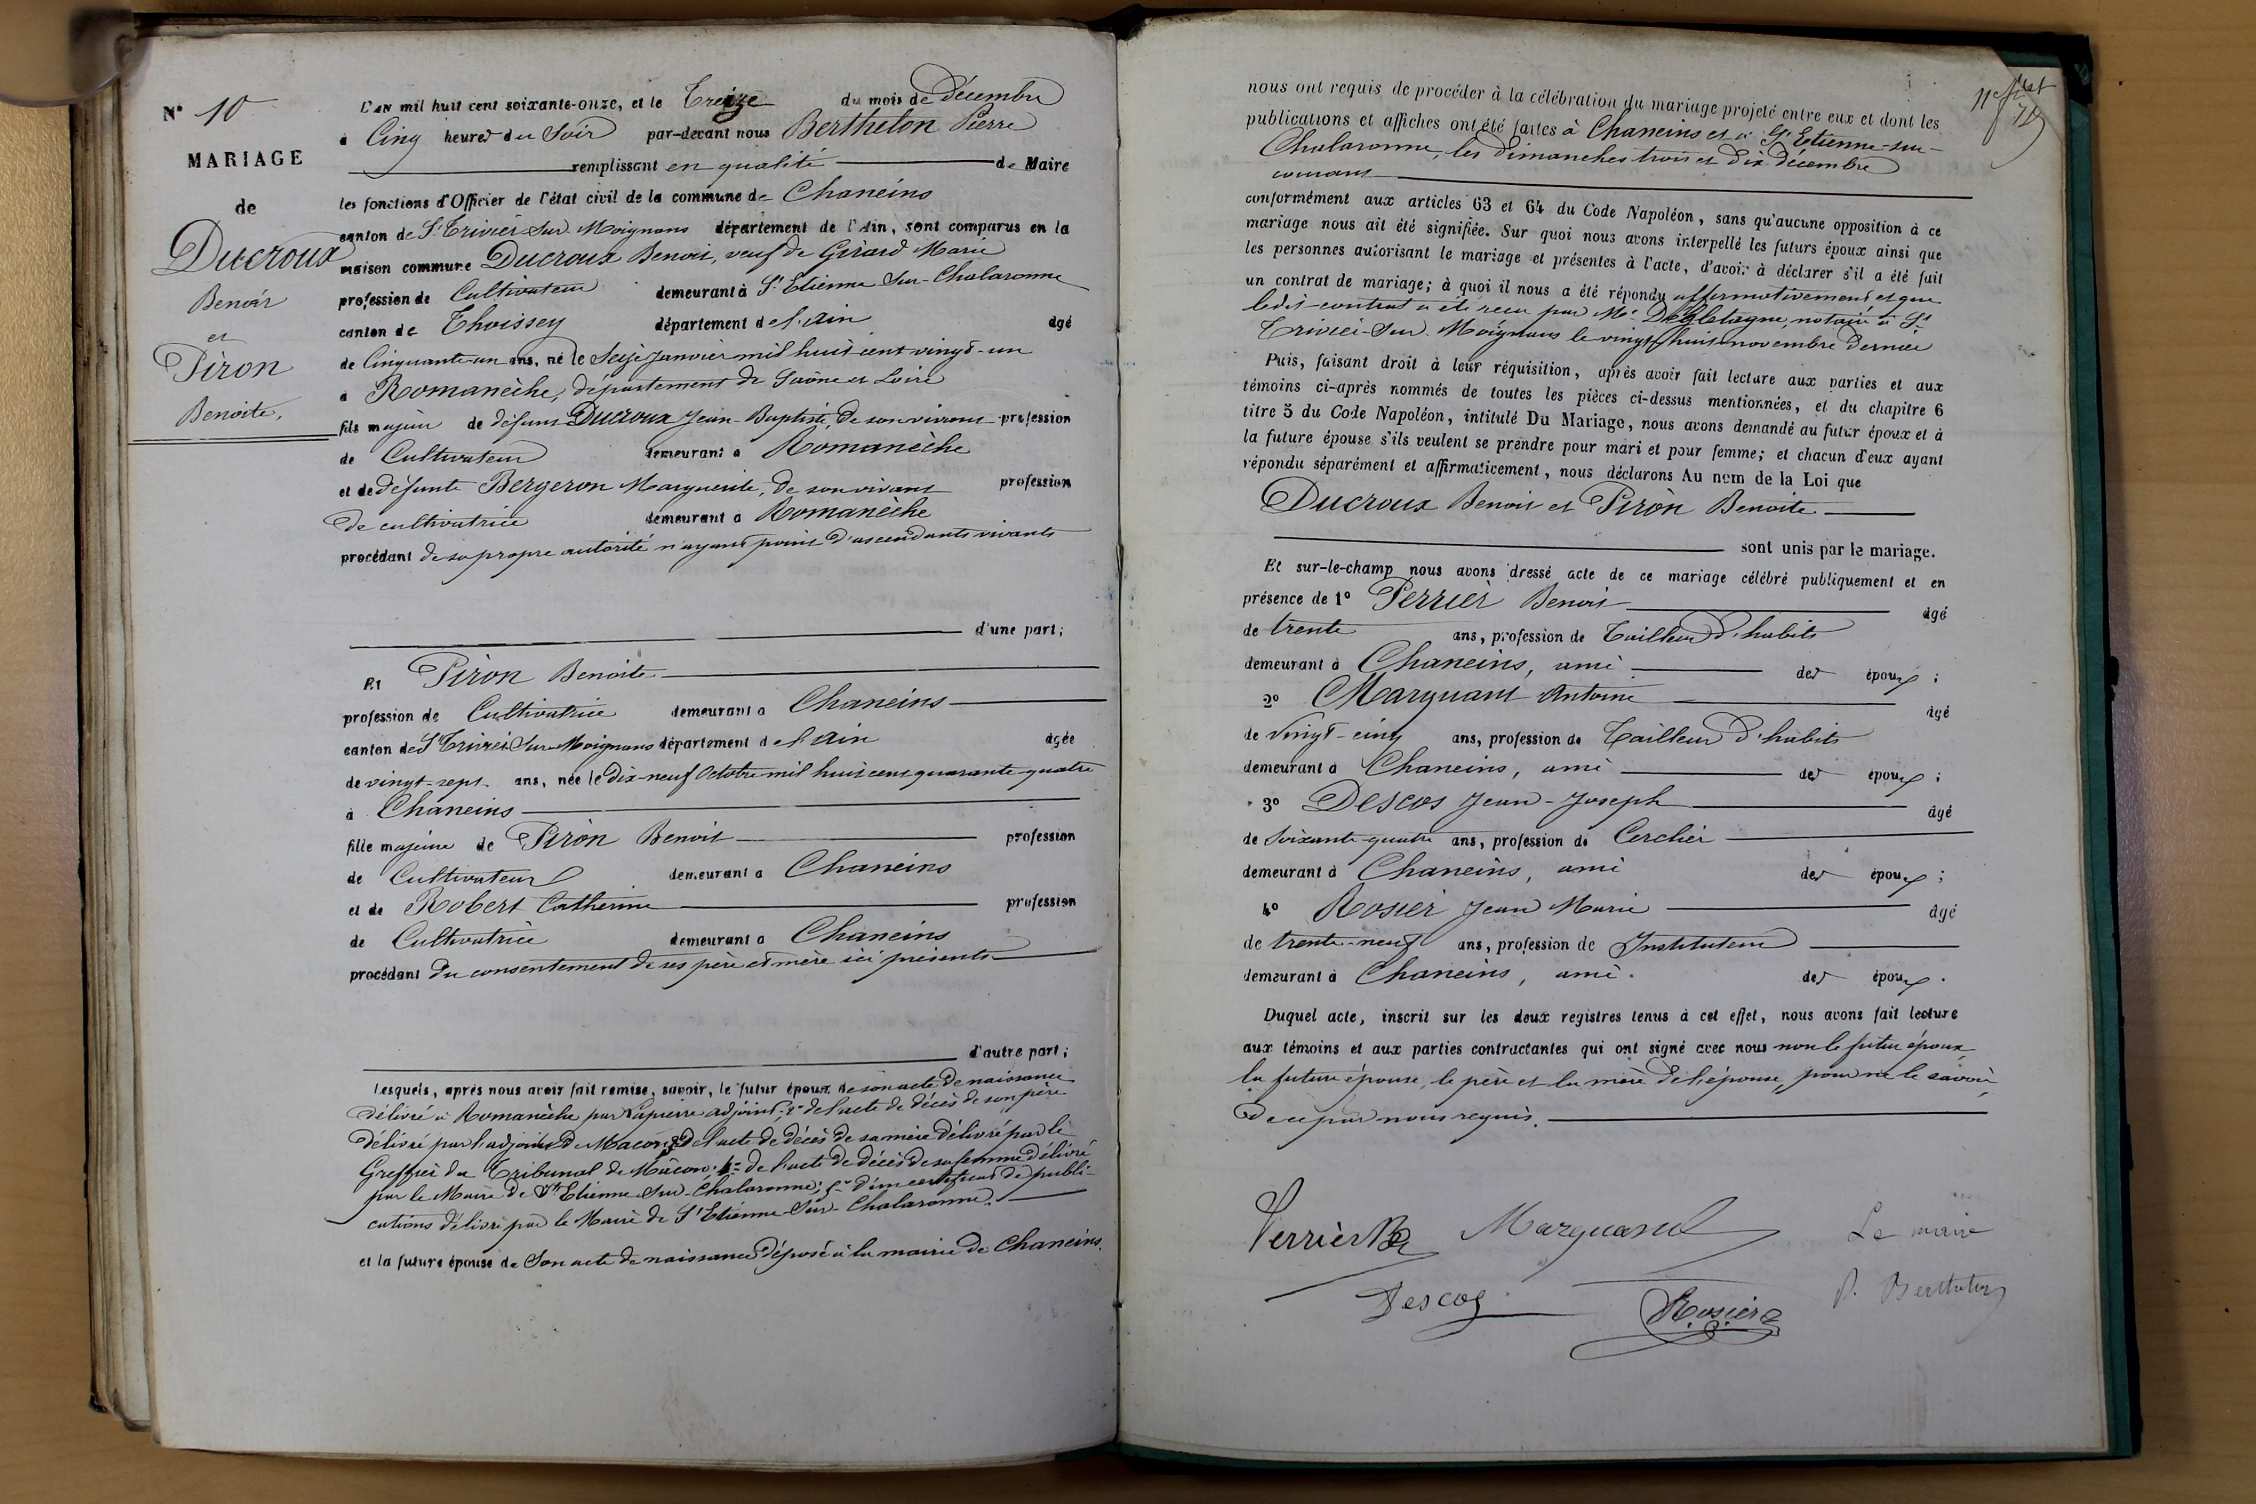 N° 10
MARIAGE
de
Ducroux
Benoit
et
Piron
Benoite,
L'AN mil huit cent soixante-onze, et le Treize du mois de Décembre
à Cinq heures du Soir par-devant nous Berthelon Pierre
remplissant en qualité de Maire
les fonctions d'Officier de l'état civil de la commune de Chaneins
canton de St Trivier sur Moignans département de l'Ain, sont comparus en la
maison commune Ducroux Benoit, veuf de Girard Marie
profession de Cultivateur demeurant à St Etienne Sur Chalaronne
canton de Thoissey département de l'Ain âgé
de Cinquante-un ans, né le Seize Janvier mil huit cent vingt-un
à Romanèche, département de Saône et Loire
fils majeur de défunt Ducroux Jean-Baptiste, de son vivant profession
de Cultivateur demeurant à Romanèche
et de défunte Bergeron Marguerite, de son vivant profession
de cultivatrice demeurant à Romanèche
procédant de sa propre autorité n'ayant point d'ascendants vivants
d'une part;
Et Piron Benoite
profession de Cultivatrice demeurant à Chaneins
canton de St Trivier Sur Moignans département de l'Ain âgée
de vingt-sept ans, née le Dix-neuf Octobre mil huit cent quarante quatre
à Chaneins
fille majeure de Piron Benoit profession
de Cultivateur demeurant à Chaneins
et de Robert Catherine profession
de Cultivatrice demeurant à Chaneins
procédant du consentement de ses père et mère ici présents
d'autre part;
Lesquels, après nous avoir fait remise, savoir, le futur époux de son acte de naissance
délivré à Romanèche par Lapierre adjoint; 2° de l'acte de décès de son père
délivré par l'adjoint de Macon; 3° de l'acte de décès de sa mère délivré par le
Greffier du Tribunal de Mâcon; 4° de l'acte de décès de sa femme délivré
par le Maire de St Etienne Sur Chalaronne; 5° d'un certificat de publi-
cations délivré par le Maire de St Etienne Sur Chalaronne.
et la future épouse de Son acte de naissance déposé à la mairie de Chaneins.
nous ont requis de procéder à la célébration du mariage projeté entre eux et dont les
publications et affiches ont été faites à Chaneins et à St Etienne-sur-
Chalaronne, les Dimanches trois et dix décembre
courant
conformément aux articles 63 et 64 du Code Napoléon, sans qu'aucune opposition à ce
mariage nous ait été signifiée. Sur quoi nous avons interpellé les futurs époux ainsi que
les personnes autorisant le mariage et présentes à l'acte, d'avoir à déclarer s'il a été fait
un contrat de mariage; à quoi il nous a été répondu affirmativement et que
ledit contrat a été reçu par Me notaire à St
Trivier-Sur Moignans le vingt huit novembre dernier
Puis, faisant droit à leur réquisition, après avoir fait lecture aux parties et aux
témoins ci-après nommés de toutes les pièces ci-dessus mentionnées, et du chapitre 6
titre 5 du Code Napoléon, intitulé Du Mariage, nous avons demandé au futur époux et à
la future épouse s'ils veulent se prendre pour mari et pour femme; et chacun d'eux ayant
répondu séparément et affirmativement, nous déclarons Au nom de la Loi que
Ducroux Benoit et Piron Benoite
sont unis par le mariage.
Et sur-le-champ nous avons dressé acte de ce mariage célébré publiquement et en
présence de 1° Perrier Benoit âgé
de trente ans, profession de Tailleur d'habits
demeurant à Chaneins, ami des époux;
2° Marguant Antoine âgé
de Vingt-cinq ans, profession de Tailleur d'habits
demeurant à Chaneins, ami des époux;
3° Descos Jean-Joseph âgé
de Soixante-quatre ans, profession de Cerclier
demeurant à Chaneins, ami des époux;
4° Rosier Jean Marie âgé
de trente-neuf ans, profession de Instituteur
demeurant à Chaneins, ami des époux.
Duquel acte, inscrit sur les deux registres tenus à cet effet, nous avons fait lecture
aux témoins et aux parties contractantes qui ont signé avec nous non le futur époux,
la future épouse, le père et la mère de l'épouse, pour ne le savoir,
de ce par nous requis.
Perrièr Marguand Le maire
Descos Rosier P. Berthelon